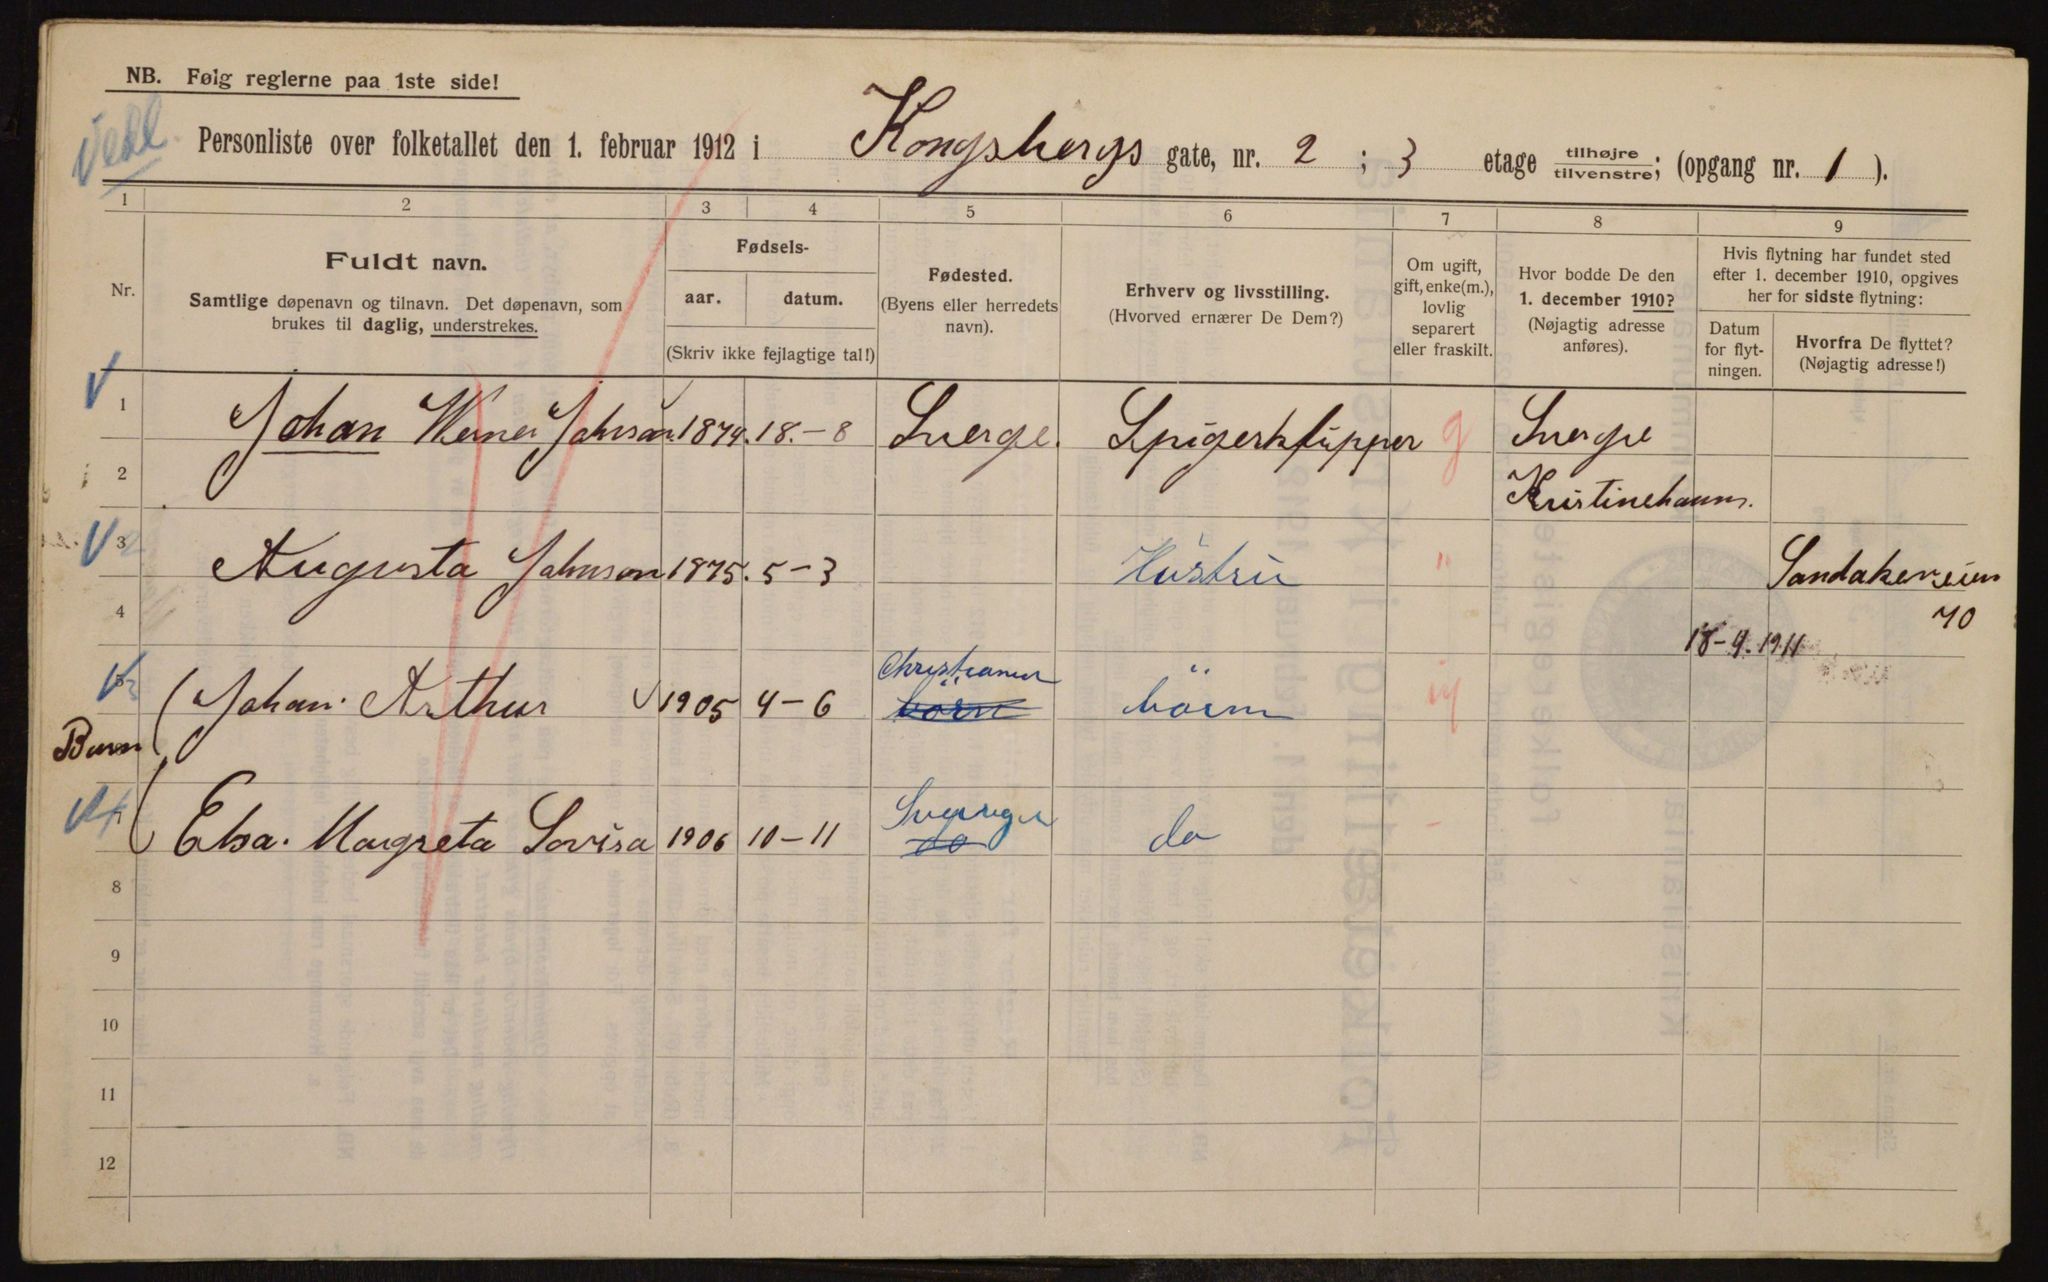 NB. Følg reglerne paa 1ste side!
Personliste over folketallet den 1. februar 1912 i Kongsbergs gate, nr. 2 ; 3 etage tilhøjre tilvenstre; (opgang nr. 1 ).
1 2 3 4 5 6 7 8 9
Nr.
Fuldt navn.
Samtlige døpenavn og tilnavn. Det døpenavn, som
brukes til daglig, understrekes.
Fødsels-
aar. datum.
(Skriv ikke fejlagtige tal!)
Fødested.
(Byens eller herredets
navn).
Erhverv og livsstilling.
(Hvorved ernærer De Dem?)
Om ugift,
gift, enke(m.),
lovlig
separert
eller fraskilt.
Hvor bodde De den
1. december 1910?
(Nøjagtig adresse
anføres).
Hvis flytning har fundet sted
efter 1. december 1910, opgives
her for sidste flytning:
Datum
for flyt-
ningen.
Hvorfra De flyttet?
(Nøjagtig adresse!)
1 Johan Werner Johnson 1874. 18.-8 Sverge. Spigerklipper g Sverge
2 Kristinehamn.
3 Augusta Johnson 1875. 5-3 Hústrú " Sandakerveien
4 70
18-4.1911
Johan. Arthur 1905 4-6 Christiania börn börn
Barn
Elsa. Margreta Lovisa 1906 10-11 Sverige do do
8
9
10
11
12